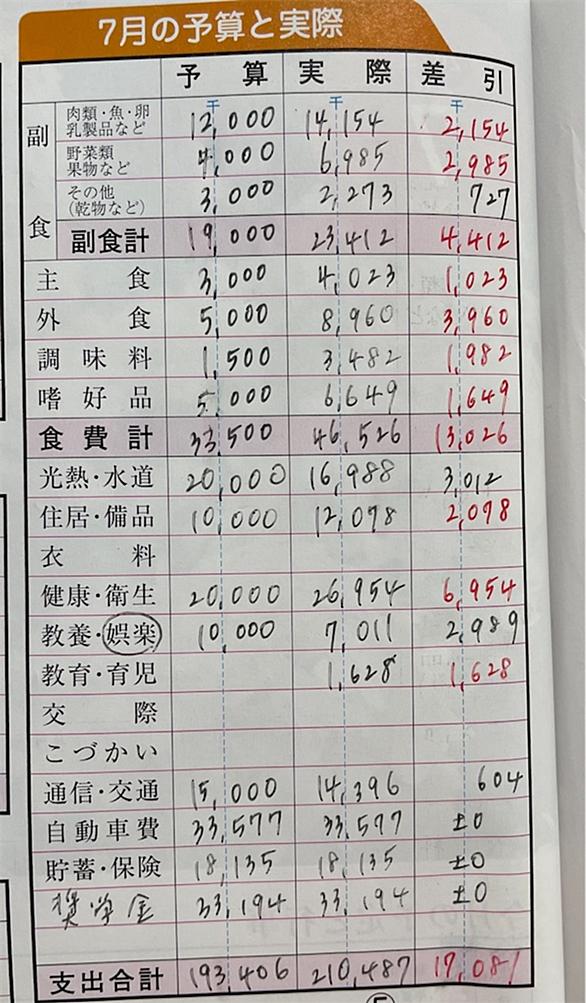 7月の予算と実際
予算 実際 差引
副食
千 千 千
肉類・魚・卵 乳製品など 12,000 14,154 2,154
野菜類 果物など 4,000 6,985 2,985
その他 (乾物など) 3,000 2,273 727
副食計 19,000 23,412 4,412
主食 3,000 4,023 1,023
外食 5,000 8,960 3,960
調味料 1,500 3,482 1,982
嗜好品 5,000 6,649 1,649
食費計 33,500 46,526 13,026
光熱・水道 20,000 16,988 3,012
住居・備品 10,000 12,078 2,078
衣料
健康・衛生 20,000 26,954 6,954
教養・娯楽 10,000 7,011 2,989
教育・育児 1,628 1,628
交際
こづかい
通信・交通 15,000 14,396 604
自動車費 33,577 33,577 ±0
貯蓄・保険 18,135 18,135 ±0
奨学金 33,194 33,194 ±0
支出合計 193,406 210,487 17,081